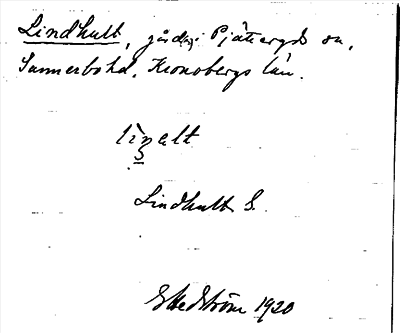 Lindhult, gård(ar) i Pjätteryds sn,
Sunnerbo hd, Kronobergs län.
lìnelt
Lindhult G.
Skedström 1920